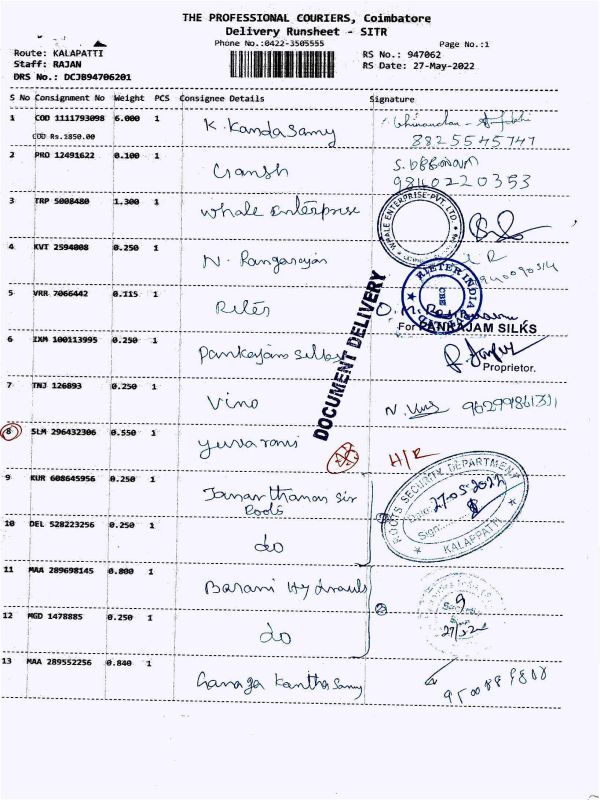 THE PROFESSIONAL COURIERS, Coimbatore
Delivery Runsheet - SITR
Phone No.:0422-3505555
Page No.:1
Route: KALAPATTI
RS No.: 947062
Staff: RAJAN
RS Date: 27-May-2022
DRS No.: DCJ894706201
S No Consignment No Weight PCS Consignee Details Signature
1 COD 1111793098 6.000 1 K. Kandasamy
COD Rs.1850.00
8825545747
2 PRO 12491622 0.100 1
98410220353
3 TRP 5008480 1.300 1 Whale Enterprise
WHALE ENTERPRISE PVT. LTD.
4 KVT 2594008 0.250 1 N. Rangarajan
5 VRR 7066442 0.115 1
RIETER INDIA
CBE
DOCUMENT DELIVERY
For PANKAJAM SILKS
6 IXM 100113995 0.250 1 Pankajam silks
Proprietor.
7 TNJ 126893 0.250 1 Vino
8 SLM 296432306 0.550 1 yuvarani
H/R
9 KUR 608645956 0.250 1 Janarthanan Sir
Roots
ROOTS SECURITY DEPARTMENT
Date: 27-05-2022
Sign:
KALAPPATTI
10 DEL 528223256 0.250 1 do
11 MAA 289698145 0.800 1 Barani Hydraulis
12 MGD 1478885 0.250 1 do
13 MAA 289552256 0.840 1 Kanthasamy